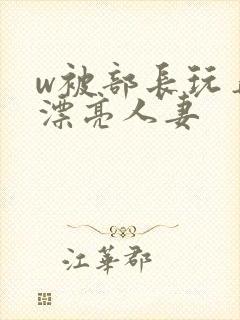 w被部長玩
漂亮人妻
江華郡